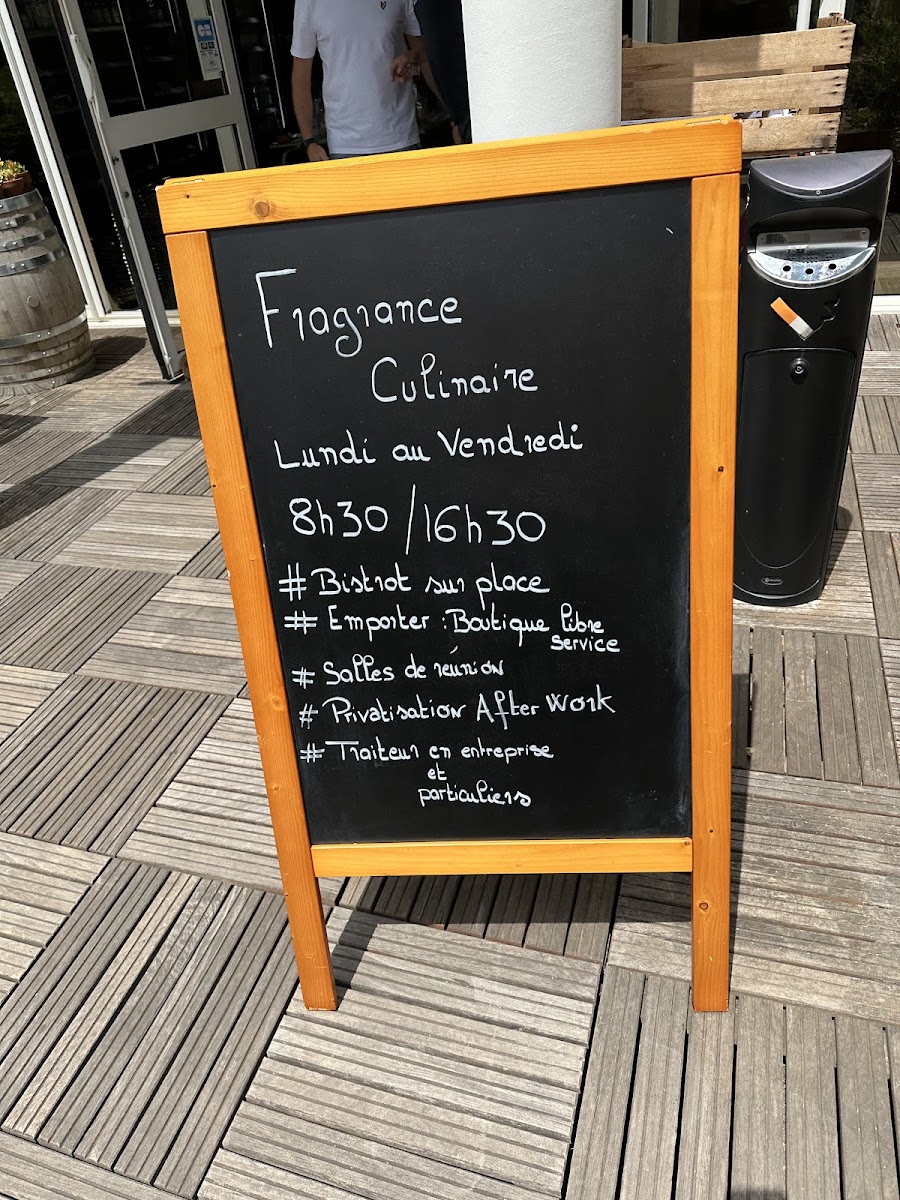 Fragrance
Culinaire
Lundi au Vendredi
8h30 / 16h30
# Bistrot sur place
# Emporter : Boutique libre
service
# Salles de réunion
# Privatisation After Work
# Traiteur en entreprise
et
particuliers
CB